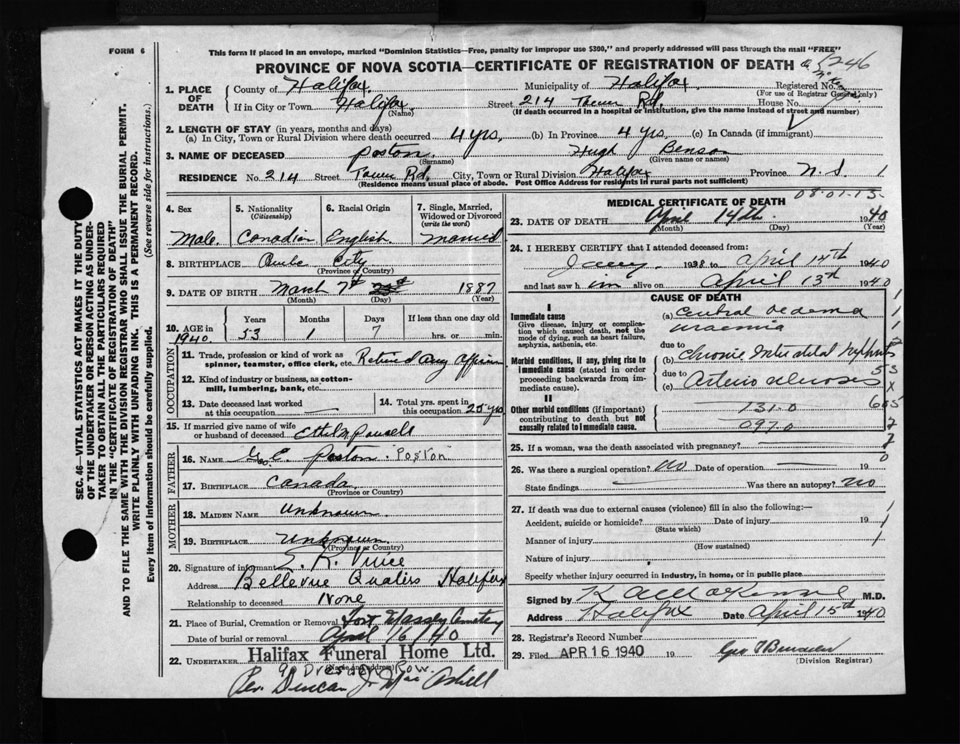 FORM 6
This form if placed in an envelope, marked "Dominion Statistics—Free, penalty for improper use $300," and properly addressed will pass through the mail "FREE"
PROVINCE OF NOVA SCOTIA—CERTIFICATE OF REGISTRATION OF DEATH
5246
1. PLACE OF DEATH
County of Halifax
Municipality of Halifax
Registered No.
(For use of Registrar General only)
If in City or Town Halifax
(Name)
Street 214 Tower Rd.
House No.
(If death occurred in a hospital or institution, give the name instead of street and number)
2. LENGTH OF STAY (in years, months and days)
(a) In City, Town or Rural Division where death occurred 4 yrs. (b) In Province 4 yrs. (c) In Canada (if immigrant)
3. NAME OF DECEASED Poston Hugh Benson
(Surname) (Given name or names)
RESIDENCE No. 214 Street Tower Rd. City, Town or Rural Division Halifax Province N.S. 1
(Residence means usual place of abode. Post Office Address for residents in rural parts not sufficient)
08-01-13
4. Sex
5. Nationality (Citizenship)
6. Racial Origin
7. Single, Married, Widowed or Divorced (write the word)
Male Canadian English Married
8. BIRTHPLACE City
(Province or Country)
9. DATE OF BIRTH March 7th 1887
(Month) (Day) (Year)
10. AGE in 1940.
Years Months Days If less than one day old
53 1 7 hrs. or min.
OCCUPATION
11. Trade, profession or kind of work as spinner, teamster, office clerk, etc. Retired Army Officer
12. Kind of industry or business, as cotton-mill, lumbering, bank, etc.
13. Date deceased last worked at this occupation —
14. Total yrs. spent in this occupation 25 yrs
15. If married give name of wife or husband of deceased Ethel M
FATHER
16. NAME Geo. E. Poston. Poston
17. BIRTHPLACE Canada
(Province or Country)
MOTHER
18. MAIDEN NAME Unknown
19. BIRTHPLACE Unknown
(Province or Country)
20. Signature of informant
Address Bellevue Halifax
Relationship to deceased None
21. Place of Burial, Cremation or Removal Fort Massey Cemetery
Date of burial or removal April 16/40
22. UNDERTAKER Halifax Funeral Home Ltd.
(Name and address)
90 Dresden Row.
Per. Duncan J.
MEDICAL CERTIFICATE OF DEATH
23. DATE OF DEATH April 14th 1940
(Month) (Day) (Year)
24. I HEREBY CERTIFY that I attended deceased from:
Jany. 1938 to April 14th 1940
and last saw him alive on April 13th 1940
CAUSE OF DEATH
I
Immediate cause
Give disease, injury or complication which caused death, not the mode of dying, such as heart failure, asphyxia, asthenia, etc.
(a) oedema
uraemia
due to
Morbid conditions, if any, giving rise to immediate cause (stated in order proceeding backwards from immediate cause).
(b) chronic nephritis
due to
(c) Arterio sclerosis
II
Other morbid conditions (if important) contributing to death but not causally related to immediate cause.
131.0
097.0
25. If a woman, was the death associated with pregnancy?
26. Was there a surgical operation? No Date of operation 19
State findings Was there an autopsy? No
27. If death was due to external causes (violence) fill in also the following:—
Accident, suicide or homicide? Date of injury 19
(State which)
Manner of injury
(How sustained)
Nature of injury
Specify whether injury occurred in industry, in home, or in public place
Signed by M.D.
Address Halifax Date April 15th 1940
28. Registrar's Record Number
29. Filed APR 16 1940 19
(Division Registrar)
SEC. 46—VITAL STATISTICS ACT MAKES IT THE DUTY OF THE UNDERTAKER OR PERSON ACTING AS UNDERTAKER TO OBTAIN ALL THE PARTICULARS REQUIRED IN THE "CERTIFICATE OF REGISTRATION OF DEATH" AND TO FILE THE SAME WITH THE DIVISION REGISTRAR WHO SHALL ISSUE THE BURIAL PERMIT.
WRITE PLAINLY WITH UNFADING INK. THIS IS A PERMANENT RECORD.
Every item of information should be carefully supplied. (See reverse side for instructions.)